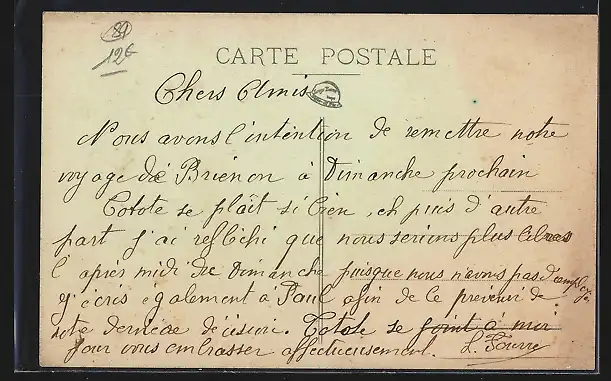 89
12€
CARTE POSTALE
Chers Amis
Nous avons l'intention de remettre notre
voyage de Briénon à Dimanche prochain
Totote se plaît si bien, et puis d'autre
part j'ai refléchi que nous serions plus libres
l'après midi du Dimanche puisque nous n'avons pas d'employé
j'écris également à Paul afin de le prévenir de
notre dernière décision. Totote se joint à moi
pour vous embrasser affectueusement.